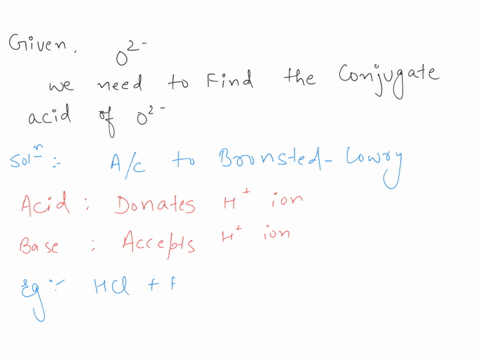 Given, O²⁻
we need to Find the Conjugate
acid of O²⁻
Solⁿ :- A/c to Bronsted-Lowry
Acid : Donates H⁺ ion
Base : Accepts H⁺ ion
Eg :- HCl +